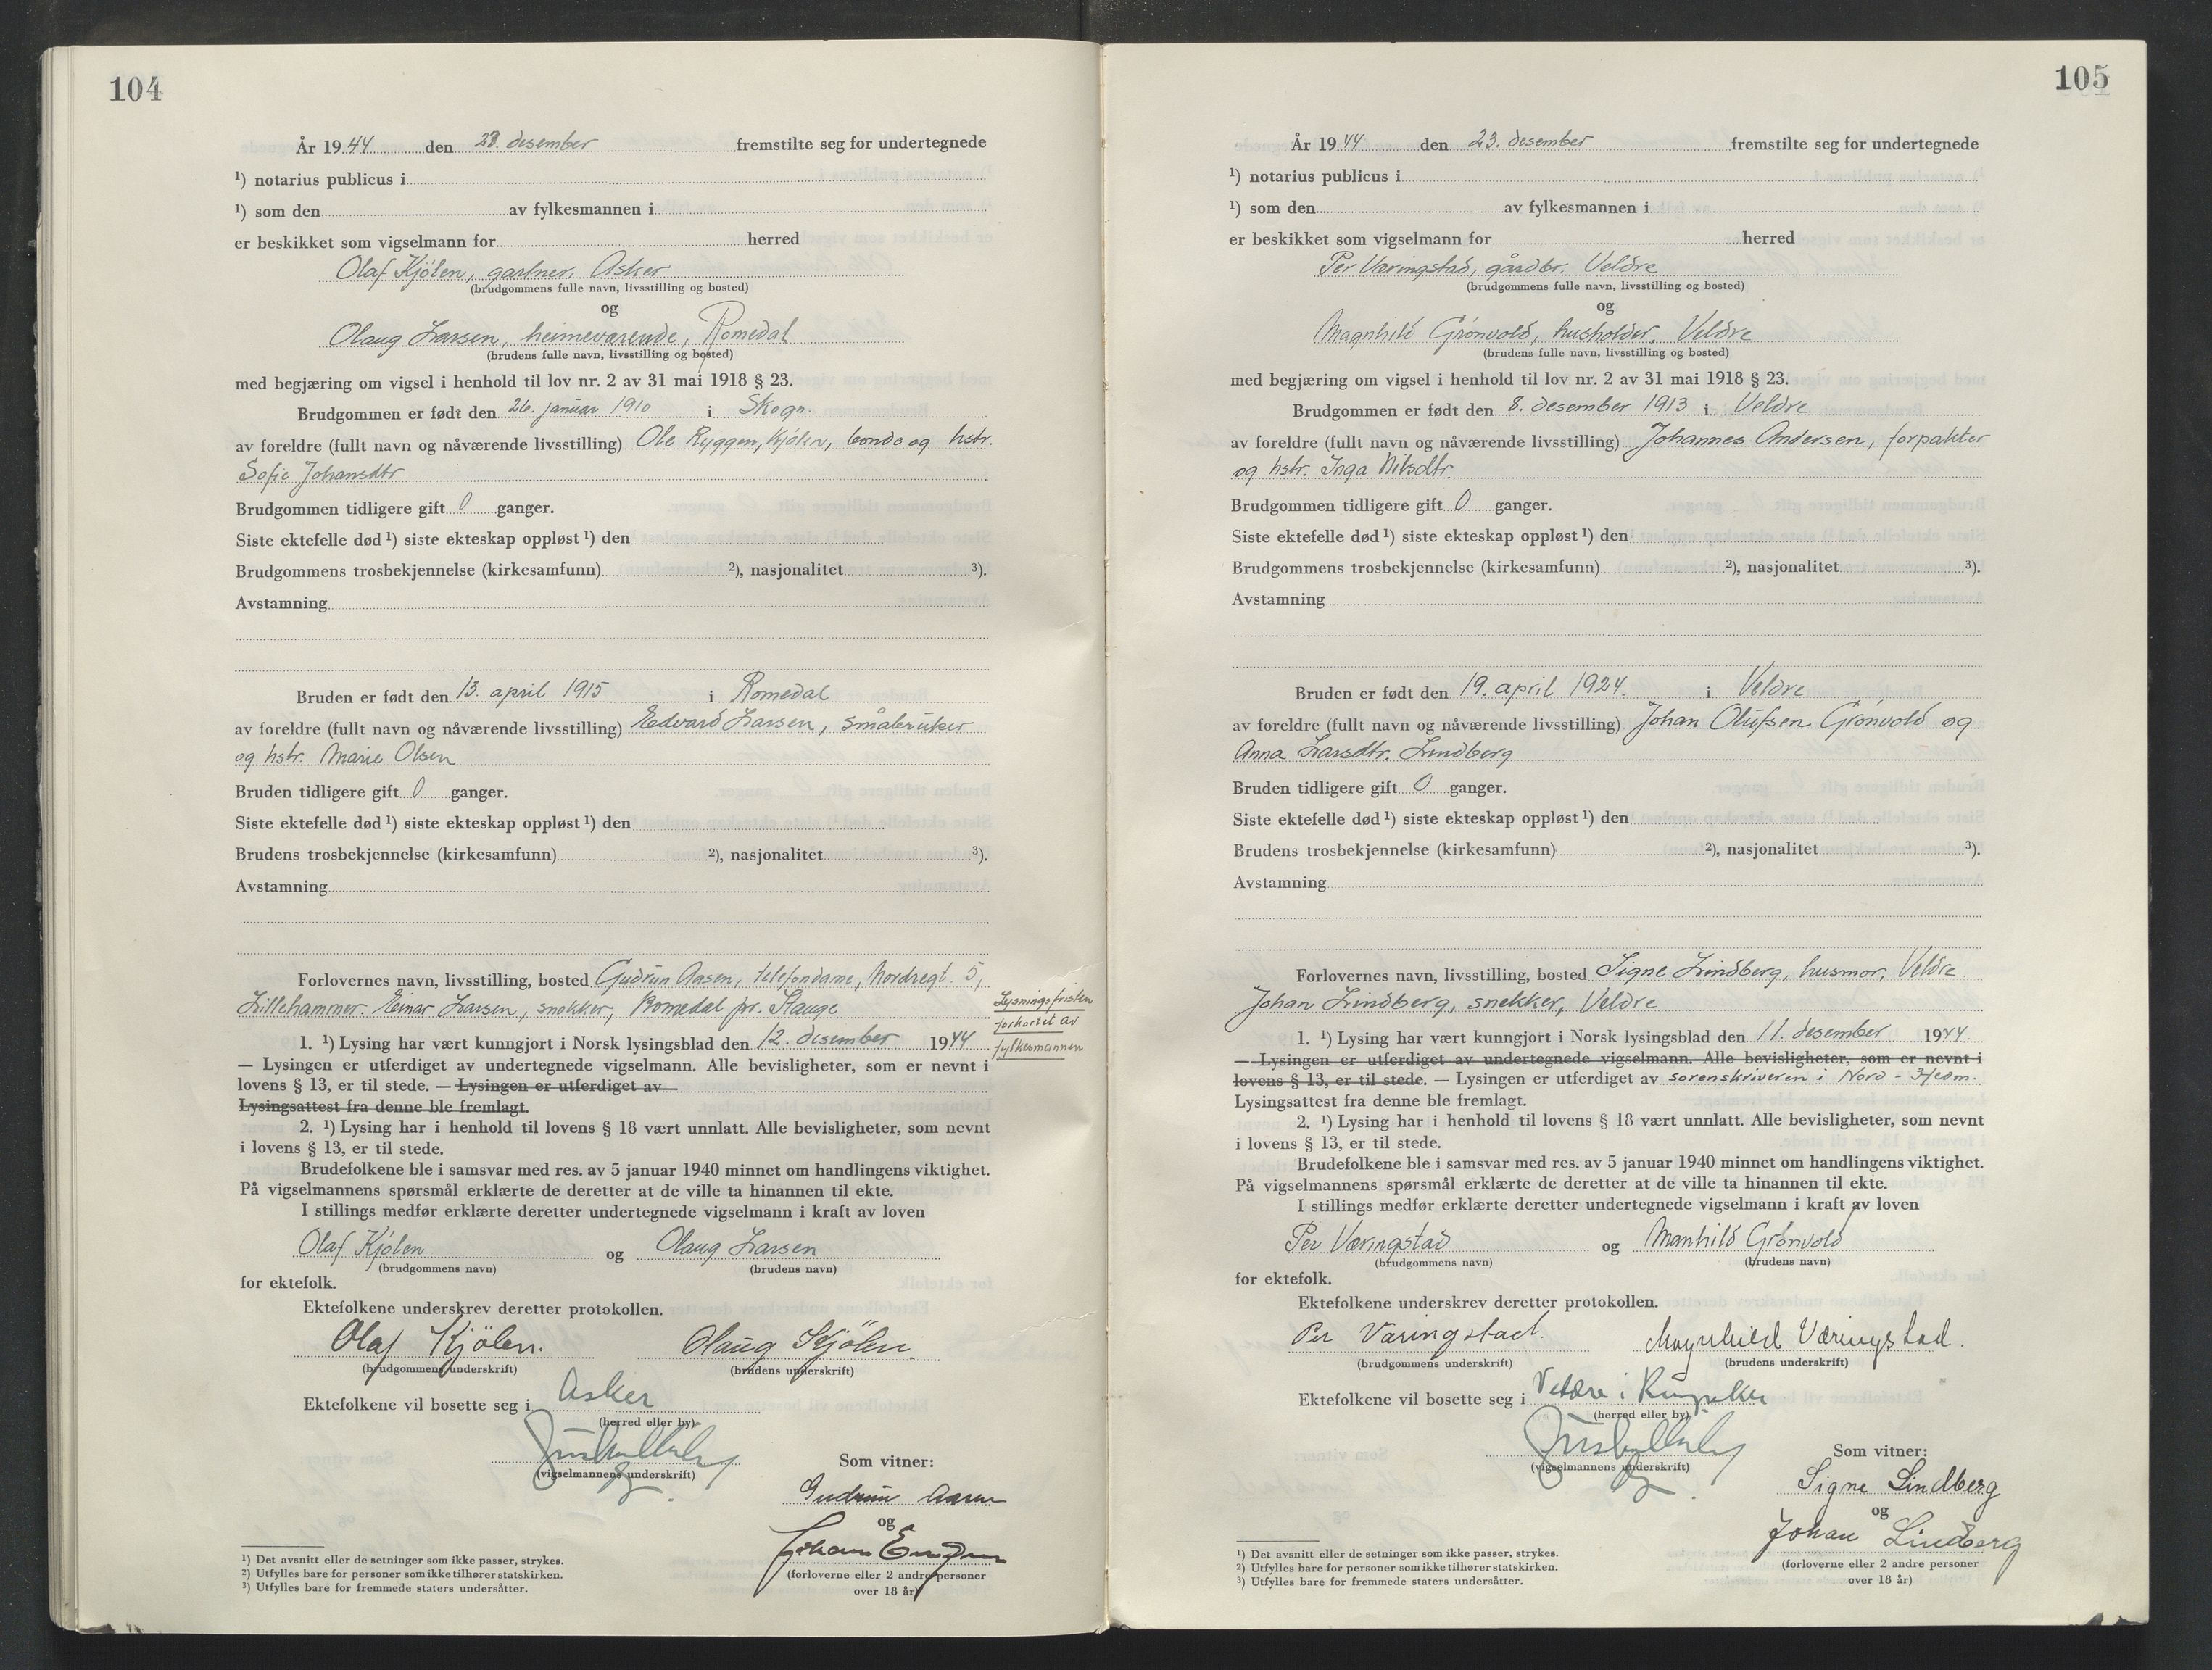 104
År 1944 den 23. desember fremstilte seg for undertegnede
¹) notarius publicus i
¹) som den av fylkesmannen i
er beskikket som vigselmann for herred
Olaf Kjölen, gartner, Asker
(brudgommens fulle navn, livsstilling og bosted)
og
Olaug Larsen, heimeværende, Romedal
(brudens fulle navn, livsstilling og bosted)
med begjæring om vigsel i henhold til lov nr. 2 av 31 mai 1918 § 23.
Brudgommen er født den 26. januar 1910 i Skogn.
av foreldre (fullt navn og nåværende livsstilling) Ole Ryggen, Kjölen, bonde og hstr.
Sofie Johansdtr
Brudgommen tidligere gift 0 ganger.
Siste ektefelle død ¹) siste ekteskap oppløst ¹) den
Brudgommens trosbekjennelse (kirkesamfunn) ²), nasjonalitet ³).
Avstamning
Bruden er født den 13. april 1915 i Romedal
av foreldre (fullt navn og nåværende livsstilling) Edvard Larsen, småbruker
og hstr. Marie Olsen
Bruden tidligere gift 0 ganger.
Siste ektefelle død ¹) siste ekteskap oppløst ¹) den
Brudens trosbekjennelse (kirkesamfunn) ²), nasjonalitet ³).
Avstamning
Forlovernes navn, livsstilling, bosted Gudrun Aasen, telefondame, Nordregt. 5,
Lillehammer. Einar Larsen, snekker, Romedal pr. Stange
Lysningsfristen
forkortet av
fylkesmannen
1. ¹) Lysing har vært kunngjort i Norsk lysingsblad den 12. desember 1944
— Lysingen er utferdiget av undertegnede vigselmann. Alle bevisligheter, som er nevnt i
lovens § 13, er til stede. — Lysingen er utferdiget av
Lysingsattest fra denne ble fremlagt.
2. ¹) Lysing har i henhold til lovens § 18 vært unnlatt. Alle bevisligheter, som nevnt
i lovens § 13, er til stede.
Brudefolkene ble i samsvar med res. av 5 januar 1940 minnet om handlingens viktighet.
På vigselmannens spørsmål erklærte de deretter at de ville ta hinannen til ekte.
I stillings medfør erklærte deretter undertegnede vigselmann i kraft av loven
Olaf Kjölen og Olaug Larsen
(brudgommens navn) (brudens navn)
for ektefolk.
Ektefolkene underskrev deretter protokollen.
Olaf Kjölen. Olaug Kjölen.
(brudgommens underskrift) (brudens underskrift)
Ektefolkene vil bosette seg i Asker
(herred eller by)
(vigselmannens underskrift)
Som vitner:
Gudrun Aasen
og
Johan
(forloverne eller 2 andre personer
over 18 år)
¹) Det avsnitt eller de setninger som ikke passer, strykes.
²) Utfylles bare for personer som ikke tilhører statskirken.
³) Utfylles bare for fremmede staters undersåtter.
105
År 1944 den 23. desember fremstilte seg for undertegnede
¹) notarius publicus i
¹) som den av fylkesmannen i
er beskikket som vigselmann for herred
Per Væringstad, gårdbr. Veldre
(brudgommens fulle navn, livsstilling og bosted)
og
Magnhild Grönvold, husholder, Veldre
(brudens fulle navn, livsstilling og bosted)
med begjæring om vigsel i henhold til lov nr. 2 av 31 mai 1918 § 23.
Brudgommen er født den 8. desember 1913 i Veldre
av foreldre (fullt navn og nåværende livsstilling) Johannes Andersen, forpakter
og hstr. Inga Nilsdtr.
Brudgommen tidligere gift 0 ganger.
Siste ektefelle død ¹) siste ekteskap oppløst ¹) den
Brudgommens trosbekjennelse (kirkesamfunn) ²), nasjonalitet ³).
Avstamning
Bruden er født den 19. april 1924. i Veldre
av foreldre (fullt navn og nåværende livsstilling) Johan Olufsen Grönvold og
Anna Larsdtr. Lindberg
Bruden tidligere gift 0 ganger.
Siste ektefelle død ¹) siste ekteskap oppløst ¹) den
Brudens trosbekjennelse (kirkesamfunn) ²), nasjonalitet ³).
Avstamning
Forlovernes navn, livsstilling, bosted Signe Lindberg, husmor, Veldre
Johan Lindberg, snekker, Veldre
1. ¹) Lysing har vært kunngjort i Norsk lysingsblad den 11. desember 1944.
— Lysingen er utferdiget av undertegnede vigselmann. Alle bevisligheter, som er nevnt i
lovens § 13, er til stede. — Lysingen er utferdiget av sorenskriveren i Nord-Hedm.
Lysingsattest fra denne ble fremlagt.
2. ¹) Lysing har i henhold til lovens § 18 vært unnlatt. Alle bevisligheter, som nevnt
i lovens § 13, er til stede.
Brudefolkene ble i samsvar med res. av 5 januar 1940 minnet om handlingens viktighet.
På vigselmannens spørsmål erklærte de deretter at de ville ta hinannen til ekte.
I stillings medfør erklærte deretter undertegnede vigselmann i kraft av loven
Per Væringstad og Manhild Grönvold
(brudgommens navn) (brudens navn)
for ektefolk.
Ektefolkene underskrev deretter protokollen.
Per Væringstad. Magnhild Væringstad.
(brudgommens underskrift) (brudens underskrift)
Ektefolkene vil bosette seg i Veldre i Ringsaker
(herred eller by)
(vigselmannens underskrift)
Som vitner:
Signe Lindberg
og
Johan Lindberg
(forloverne eller 2 andre personer
over 18 år)
¹) Det avsnitt eller de setninger som ikke passer, strykes.
²) Utfylles bare for personer som ikke tilhører statskirken.
³) Utfylles bare for fremmede staters undersåtter.